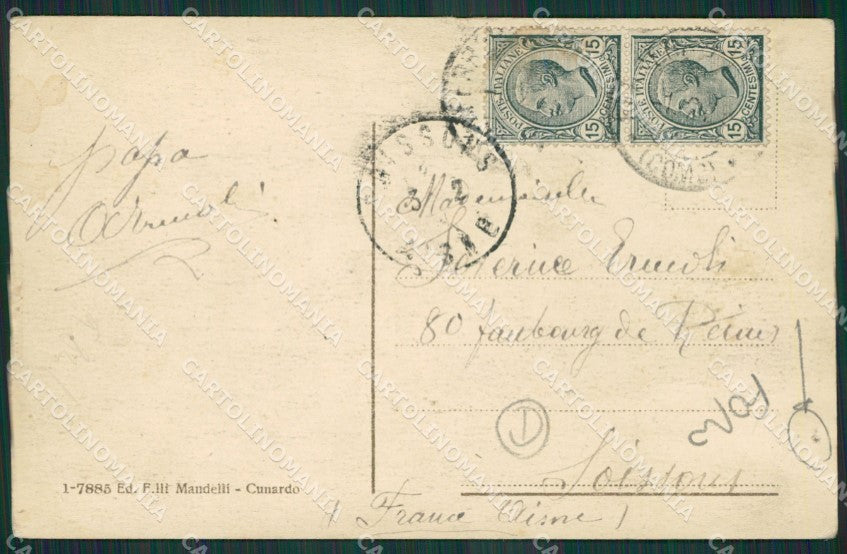 POSTE ITALIANE
CENTESIMI 15
POSTE ITALIANE
CENTESIMI 15
(COMO)
SOISSONS
2
3
AISNE
papa
Mademoiselle
Ermoli
80 faubourg de Reims
D
Soissons
(France Aisne)
1-7885 Ed. F.lli Mandelli - Cunardo
CARTOLINOMANIA